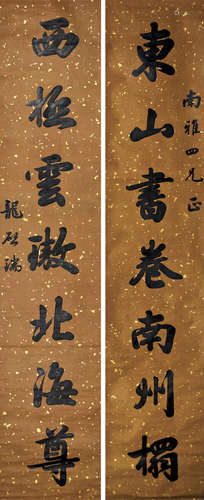 東山書卷南州榻
南雅四兄正
西極雲璈北海尊
龍啟瑞